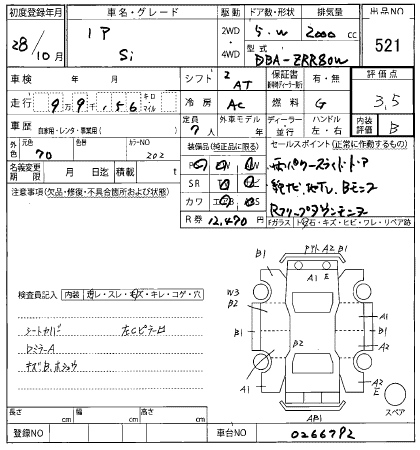 初度登録年月 車名・グレード 駆動 ドア数・形状 排気量 出品NO
28/10月 IP Si 2WD 4WD 5.W 2000 cc 521
型式 DBA-ZRR80W
車検 年 月 シフト 2 AT 保証書 有・無 評価点 3,5
走行 9万9千,156 キロ・マイル 冷房 AC 燃料 G
車歴 自家用・レンタ・事業用( ) 定員 7人 外車モデル 年 ディーラー 並行 ハンドル 左・右 内装評価 B
外色 元色 70 色替 カラーNO 202
装備品(純正品に限る) セールスポイント(正常に作動するもの)
名義変更期限 月 日迄 積載 t
注意事項(欠品・修復・不具合箇所および状態)
SR
カワ
R券 12,470円
両パワースライドドア
Bモニタ
Rフリップダウンモニタ
Fガラス トビ石・キズ・ヒビ・ワレ・リペア跡
検査員記入 内装 ヨゴレ・スレ・キズ・キレ・コゲ・穴
シートカバー 左Cピラー
ミラーA
キズB.
B1 A2 B1
A1 E
W3
B2
B1 B2 A1
B1 A2
A1 A1
A2
E
AB1
スペア
長さ cm 幅 cm 高さ cm
登録NO 車台NO 0266792